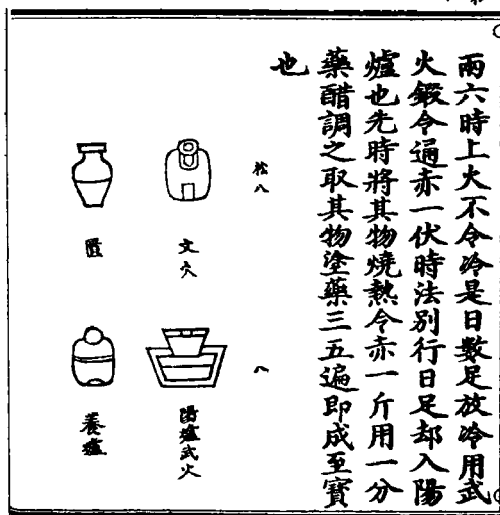 兩六時上火不令冷是日數足放冷用武
火鍛令遍赤一伏時法別行日足却入陽
爐也先時將其物燒熱令赤一斤用一分
藥醋調之取其物塗藥三五遍即成至寶
也
松八
八
文火
陽爐武火
匱
養爐